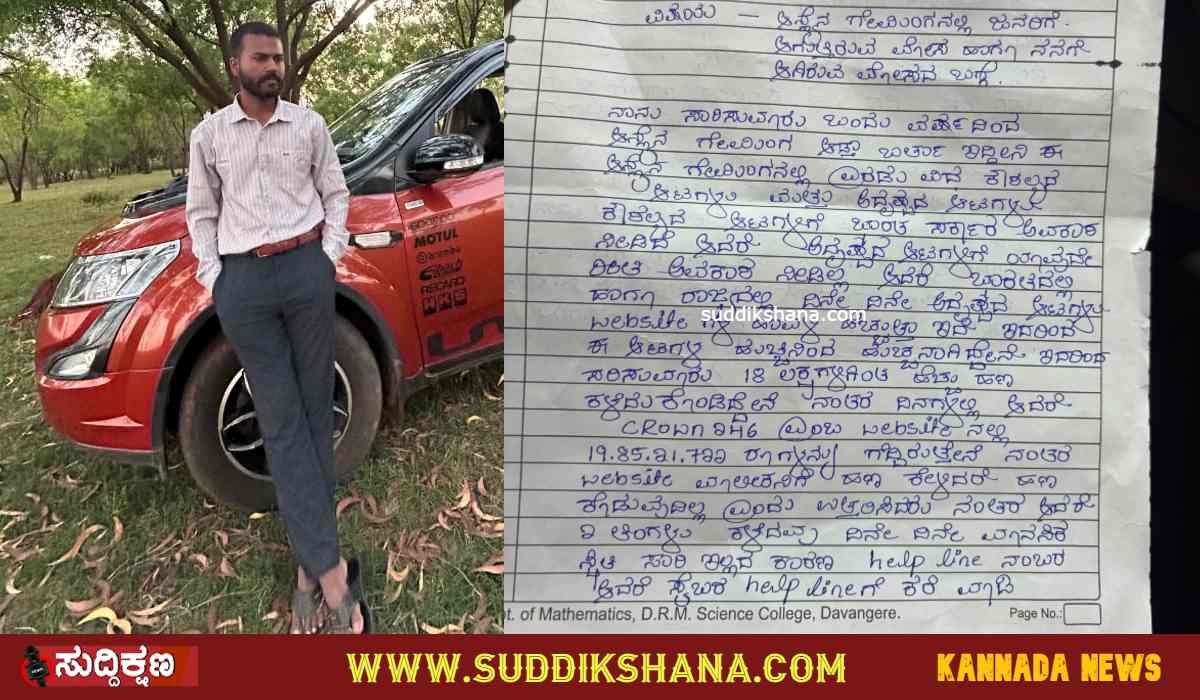 ವಿಷಯ — ಆನ್ಲೈನ ಗೇಮಿಂಗನಲ್ಲಿ ಜನರಿಗೆ
ಆಗುತ್ತಿರುವ ಮೋಸ ಹಾಗೂ ನನಗೆ
ಆಗಿರುವ ಮೋಸದ ಬಗ್ಗೆ.
ನಾನು ಸುಮಾರು ಒಂದು ವರ್ಷದಿಂದ
ಆನ್ಲೈನ ಗೇಮಿಂಗ ಆಡ್ತಾ ಬರ್ತಾ ಇದ್ದೀನಿ ಈ
ಆನ್ಲೈನ ಗೇಮಿಂಗನಲ್ಲಿ ಎರಡು ವಿಧ ಕೌಶಲ್ಯದ
ಆಟಗಳು ಮತ್ತು ಅದೃಷ್ಟದ ಆಟಗಳು
ಕೌಶಲ್ಯದ ಆಟಗಳಿಗೆ ಭಾರತ ಸರ್ಕಾರ ಅವಕಾಶ
ನೀಡಿದೆ ಆದರೆ ಅದೃಷ್ಟದ ಆಟಗಳಿಗೆ ಯಾವುದೇ
ರೀತಿ ಅವಕಾಶ ನೀಡಿಲ್ಲ ಆದರೆ ಭಾರತದಲ್ಲಿ
ಹಾಗೂ ರಾಜ್ಯದಲ್ಲಿ ದಿನೇ ದಿನೇ ಅದೃಷ್ಟದ ಆಟಗಳು
suddikshana.com
website ಇದೆ ಇದರಿಂದ
ಈ ಆಟಗಳ ಹುಚ್ಚನಿಂದ ಹುಚ್ಚನಾಗಿದ್ದೇನೆ ಇದರಿಂದ
ಸರಿಸುಮಾರು 18 ಲಕ್ಷಗಳಿಗಿಂತ ಹೆಚ್ಚು ಹಣ
ಕಳೆದುಕೊಂಡಿದ್ದೇನೆ ನಂತರ ದಿನಗಳಲ್ಲಿ ಆದರೆ
CROWN 246 ಎಂಬ website ನಲ್ಲಿ
19.85.21.722 ರೂಗಳನ್ನು ಗೆದ್ದಿರುತ್ತೇನೆ ನಂತರ
website ಮಾಲೀಕನಿಗೆ ಹಣ ಕೇಳಿದರೆ ಹಣ
ಕೊಡುವುದಿಲ್ಲ ಎಂದು ಉತ್ತರಿಸಿದರು ನಂತರ ಆದರೆ
2 ತಿಂಗಳು ಕಳೆದವು ದಿನೇ ದಿನೇ ಮಾನಸಿಕ
ಸ್ಥಿತಿ ಸರಿ ಇಲ್ಲದ ಕಾರಣ help line ನಂಬರ
ಆದರೆ ಸೈಬರ help lineಗೆ ಕರೆ ಮಾಡಿ
t. of Mathematics, D.R.M. Science College, Davangere. Page No.:
MOTUL
brembo
RECARO
HKS
ಸುದ್ದಿಕ್ಷಣ WWW.SUDDIKSHANA.COM KANNADA NEWS